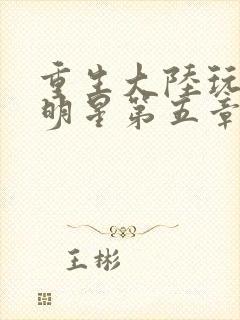 重生大陸玩
明星第五章
王彬